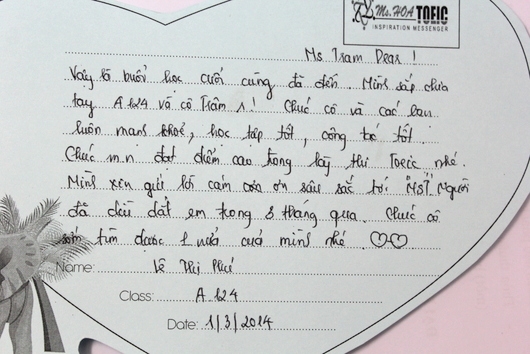 Ms. HOA TOEIC
INSPIRATION MESSENGER
Ms. Tram Dear !
Vậy là buổi học cuối cùng đã đến. Mình sắp chia
tay A124 và cô Trâm r! Chúc cô và các bạn
luôn mạnh khoẻ, học tập tốt, công tác tốt.
Chúc m.n đạt điểm cao trong kỳ thi Toeic nhé.
Mình xin gửi lời cảm ơn sâu sắc tới "MsT" Người
đã dìu dắt em trong 3 tháng qua. Chúc cô
sớm tìm được 1 nửa của mình nhé
Name: Lê Thị Phú
Class: A 124
Date: 1/3/2014